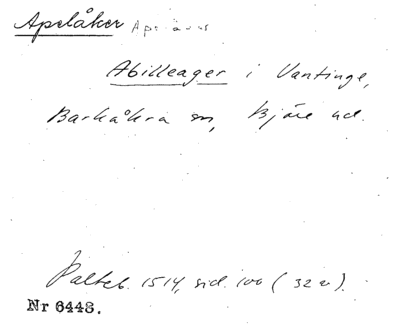 Apelåker
Abilleager i Vantinge,
Barkåkra sn, Bjäre hd.
Palteb. 1514, sid. 100 (32 v).
Nr 6448.